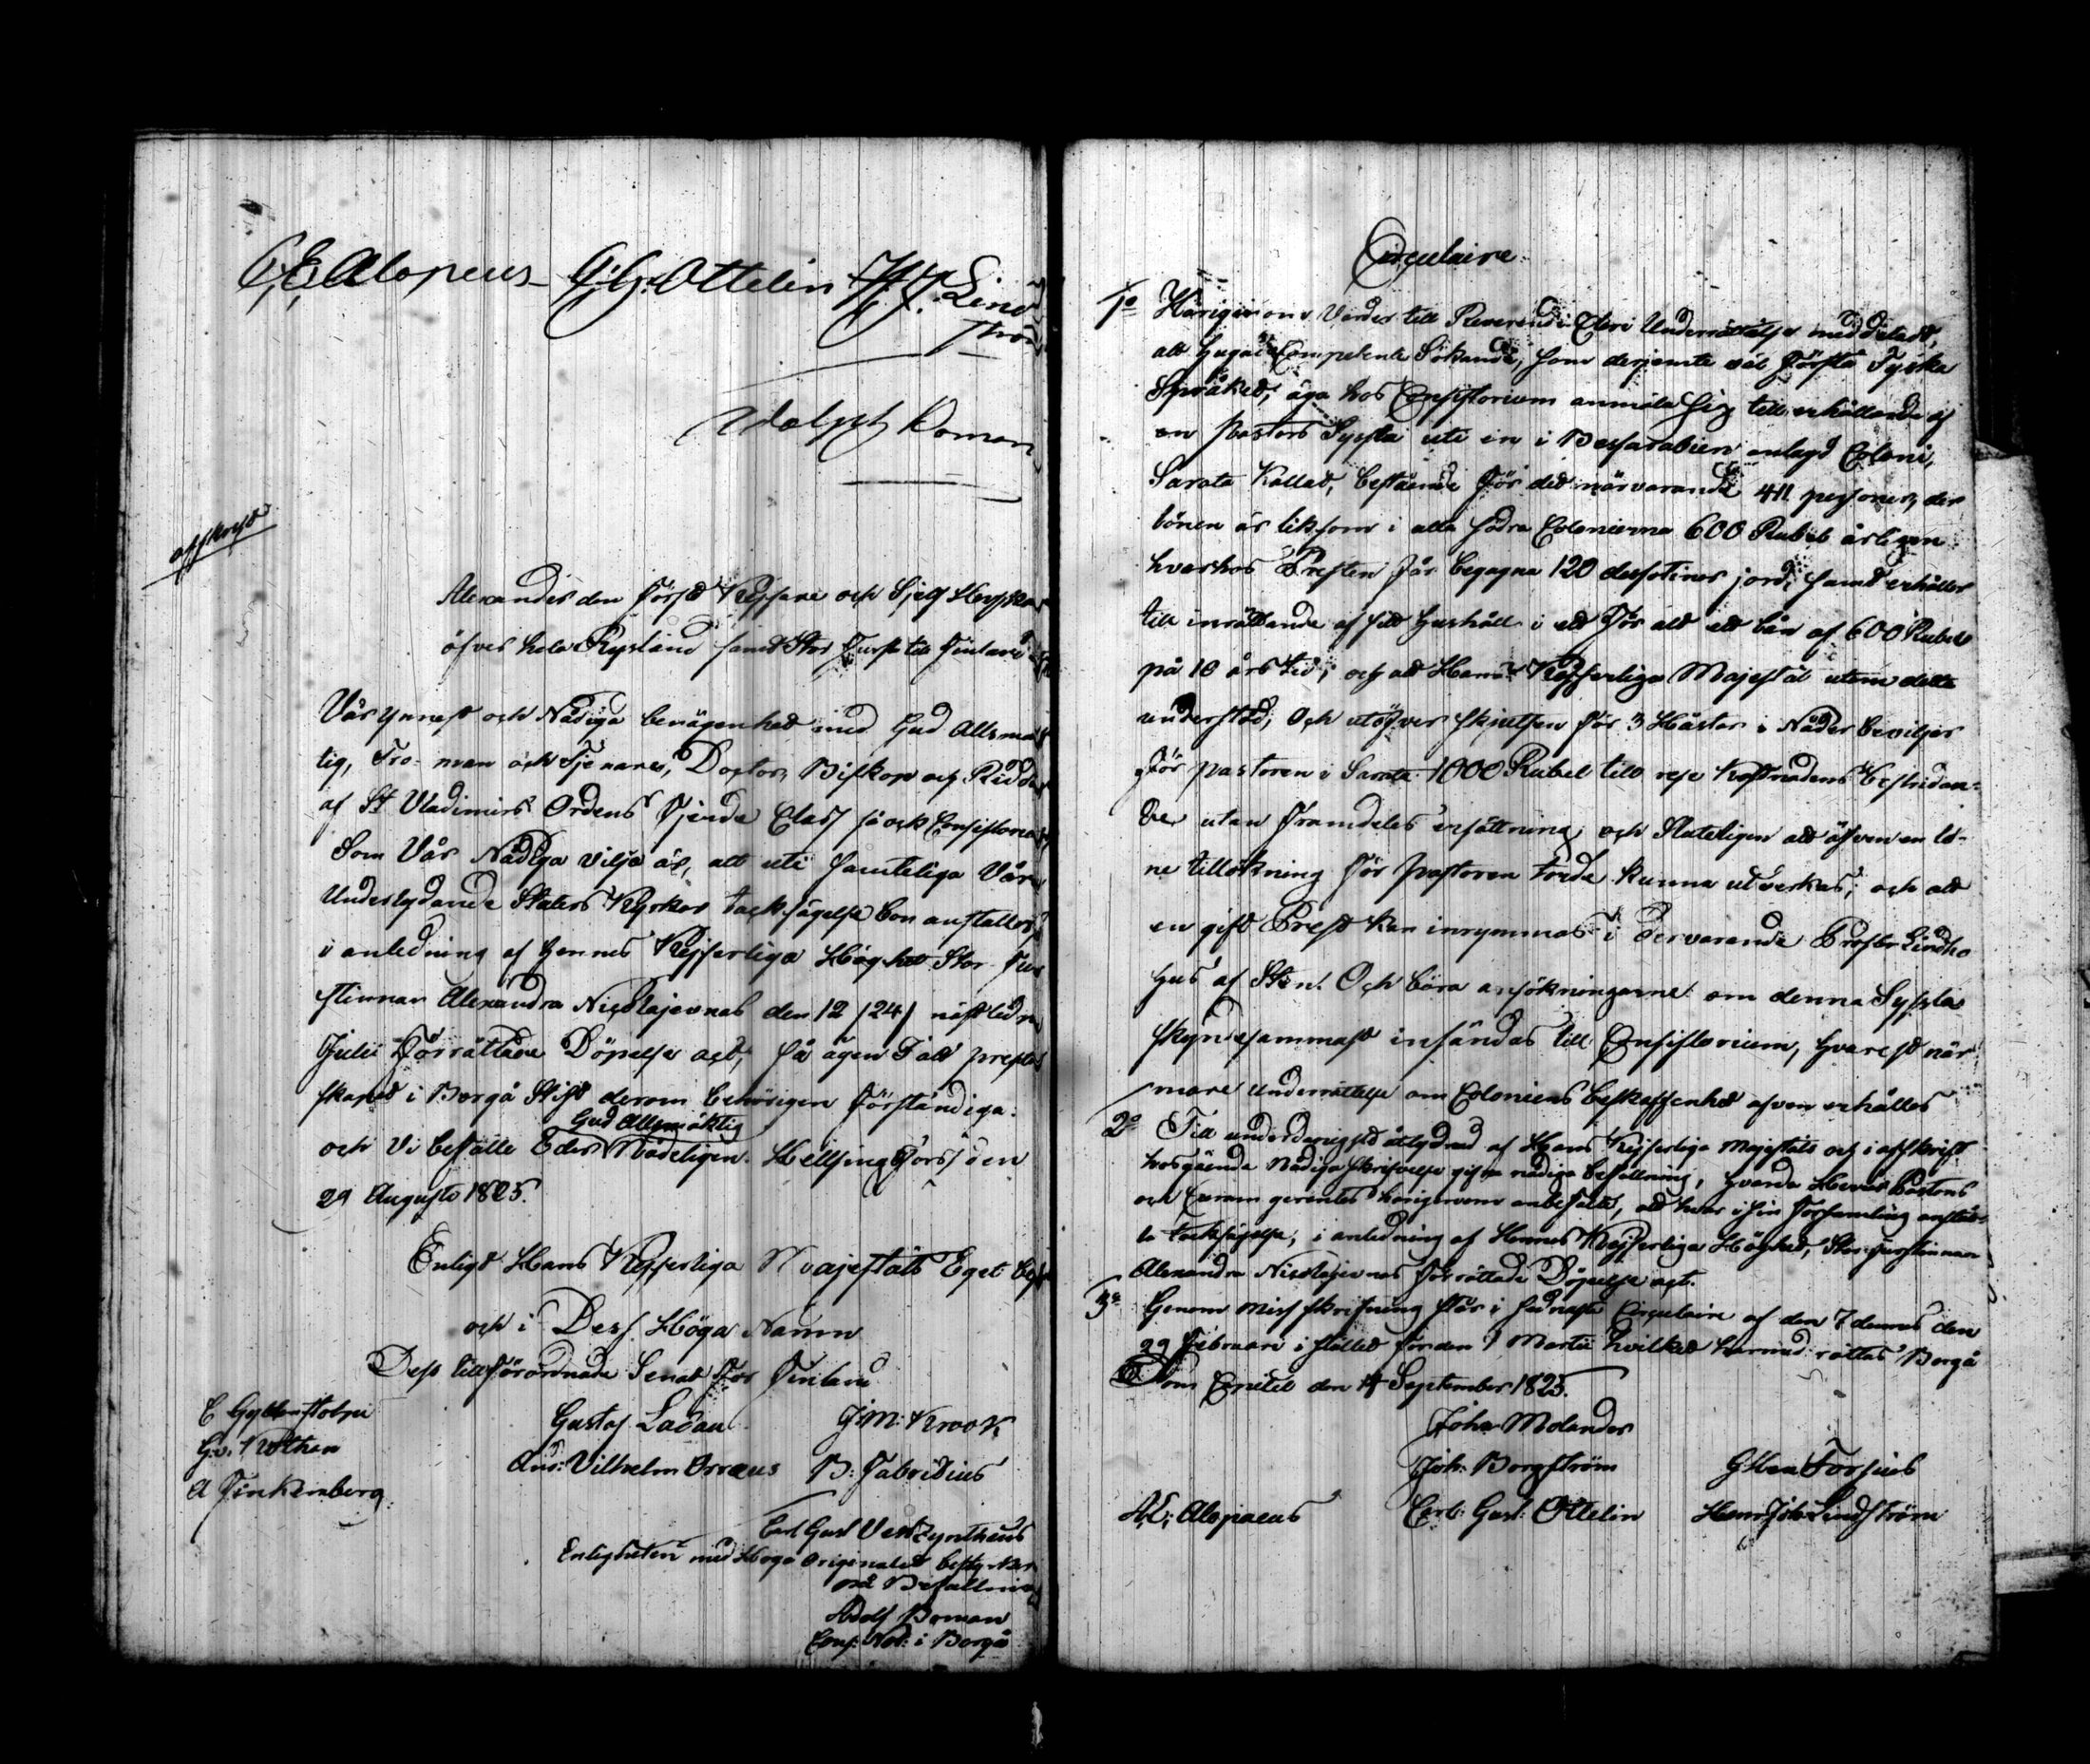 C, E, Alopeus G: G: Ottelin H J. Lind
ström
Adolph Roman
afskrift
Alexander den Först Kejsare och Sjelf Herskar
öfver hela Ryssland samt Stor Furste till Finland
Vår ynnest och Nådiga benägenhet med Gud Allsmäk
tig, Tro-man och Tjenare, Doctor, Biskop och Ridda
af St Vladimirs Ordens Fjerde Class så ock Consistorium
Som Vår Nådiga vilja är, att uti samteliga Våre
Underlydande Staters Kyrkor tacksägelse bön anställes
i anledning af hennes Kejserliga Höghet Stor Fur
stinnan Alexandra Nicolajevnas den 12 /24/ nästledne
Julii Förrättade Döpelse act; så ägen I att prester
skapet i Borgå Stift derom behörigen förständiga:
Gud Allsmäktig
och Vi befalle Eder Nådeligen. Hellsingfors den
29 Augusti 1825.
Enligt Hans Kejserliga Majestäts Eget Bes
och i Dess Höga Namn
Dess tillförordnade Senat för Finland
C Gyllenstolpe Gustaf Ladau J: M: Krook
G. v. Kothen And: Vilhelm Orræus B: Fabritius
A Finkenberg.
Carl Gust Ven Zyntheus
Enligheten med Höga Originalet bestyrker
på Befallning
Adolf Boman
Cons: Not: i Borgå
Circulaire
1o Härigenom Varder till Reverendi Cleri Underrättelse meddeladt,
att hugade Competente Sökande, som derjemte väl förstå Tyska
Språket, äga hos Consistorium anmäla sig till erhållande af
en Pastors Syssla uti en i Bessarabien anlagd Coloni,
Sarata Kallad, bestående för det närvarande 411 personer, der
lönen är liksom i alla södra Colonierna 600 Rubel årligen
hvarhos Presten får begagna 120 dessetiner jord, samt erhåller
till inrättande af sitt hushåll i ett för allt ett lån af 600 Rubel
på 10 års tid; och att Hans Kejserliga Majestät utom detta
understöd, Och utöfver skjutsen för 3 Hästar i Nåder beviljar
för pastoren i Sarata 1000 Rubel till rese kostnadens bestridan-
de utan framdeles ersättning; och Slutligen att äfven en lö-
ne tillökning för Pastoren torde kunna utverkas; och att
en gift Prest kan inrymmas i dervarande Prosten Lindho
hus af Sten. Och böra ansökningarne om denna Syssla
skyndesammast insändas till Consistorium, hvarest när
mare underrättelse om Coloniens beskaffenhet äfven erhålles
2o Till underdånigst åtlydnad af Hans Kejserliga Majestäts och i afskrift
hosgående Nådiga skrifvelse gifna nådiga befallning, hvarda Herrar Pastores
och Eorum gerentes härigenom anbefalte, att hvar i sin församling anstäl-
la tacksägelse, i anledning af Hennes Kejserliga Höghet, Stor-furstinnan
Alexandra Nicolajevnas förrättade Döpelse act.
3o Genom misskrifning står i sednaste Circulaire af den 7 dennes den
29 Februari i stället för den 1 Martii hvilket härmed rättas Borgå
Dom Capitel den 14 September 1825.
Joh: Molander
Joh: Borgström G Hen Forsius
A, E; Alopaeus Carl: Gust: Ottelin Henr Joh Lindström